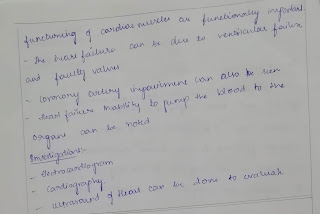 functioning of cardiac muscles are functionally important
- The heart failure can be due to ventricular failure
and faulty valves
- coronary artery impairment can also be seen
- heart failure inability to pump the blood to the
organs can be noted
Investigations:-
- Electrocardiogram
- Cardiography
- ultrasound of heart can be done to evaluate